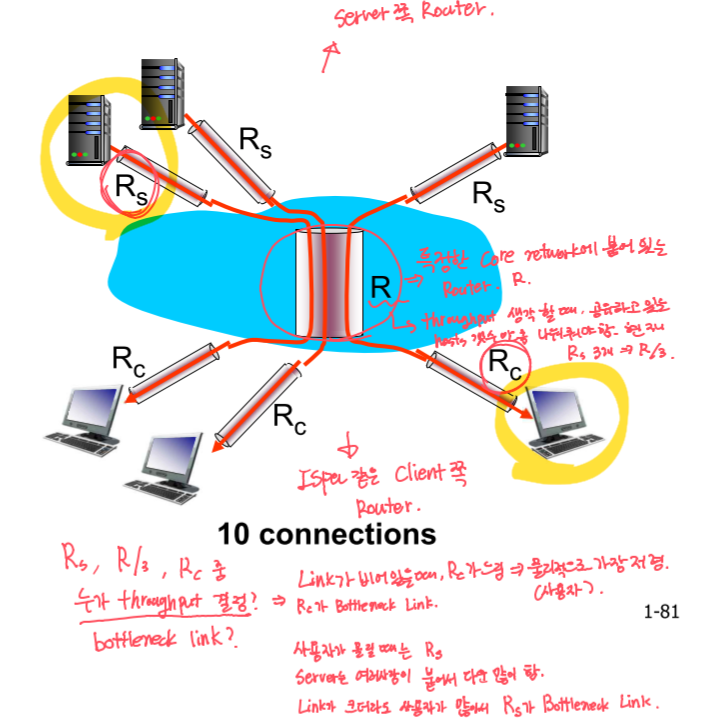 Server쪽 Router.
Rs
Rs
Rs
R
⇒ 특정한 Core network에 붙어 있는
Router. R.
throughput 생각할 때, 공유하고 있는
hosts 갯수만큼 나눠줘야함. 현재
Rs 3개 ⇒ R/3.
Rc
Rc
Rc
같은 Client 쪽
Router.
10 connections
Rs, R/3, Rc 중
누가 throughput 결정? ⇒
bottleneck link?
Link가 비어있을 때, Rc가 느림 ⇒ 물리적으로 가장 저렴.
Rc가 Bottleneck Link.
(사용자).
1-81
사용자가 몰릴 때는 Rs
Server는 여러사람이 붙어서 다운 많이 함.
Link가 크더라도 사용자가 많아서 Rs가 Bottleneck Link.